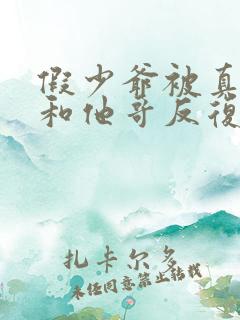 假少爷被真
和他哥反復
扎卡尔多
未经同意禁止转载